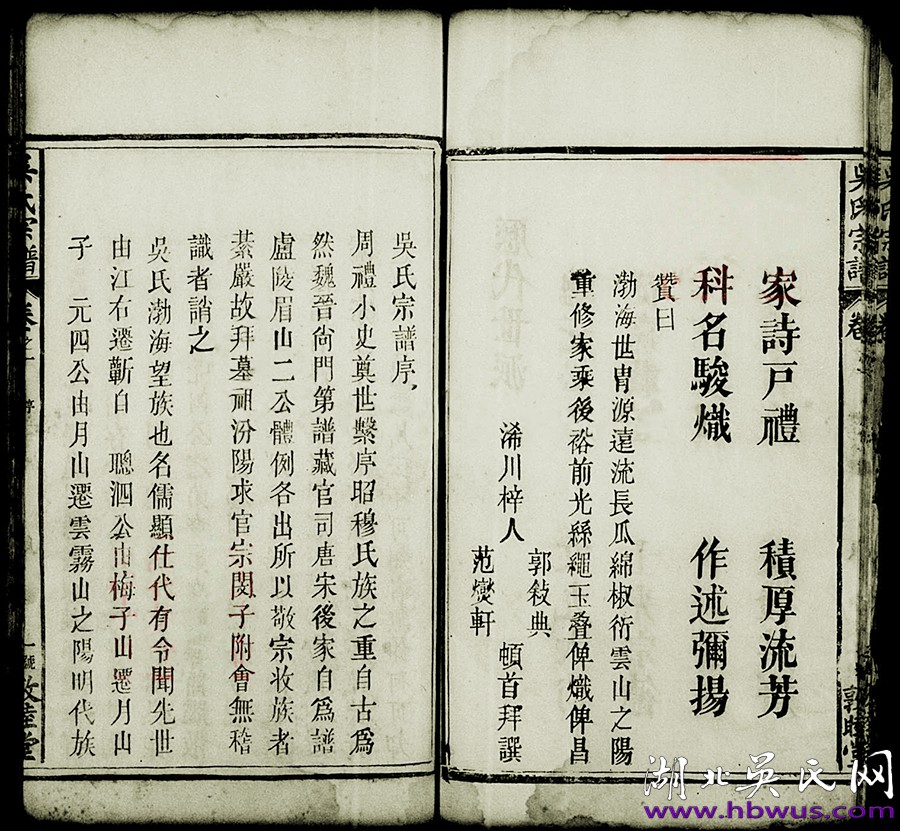 家詩戸禮　積厚流芳
科名駿熾　作述彌揚
贊曰
渤海世胄源遠流長瓜綿椒衍雲山之陽
重修家乘後裕前光絲繩玉叠俾熾俾昌
浠川梓人
郭敍典
范燮軒
頓首拜譔
吳氏宗譜
吳氏宗譜序
周禮小史奠世繫序昭穆氏族之重自古爲
然魏晉尙門第譜藏官司唐宋後家自爲譜
盧陵眉山二公體例各出所以敬宗收族者
綦嚴故拜墓祖汾陽求官宗閔子附會無稽
識者誚之
吳氏渤海望族也名儒顯仕代有令聞先世
由江右遷蘄自　聰泗公由梅子山遷月山
子　元四公由月山遷雲霧山之陽明代族
吳氏宗譜
卷之一
一號
敦睦堂
湖北吴氏网
www.hbwus.com